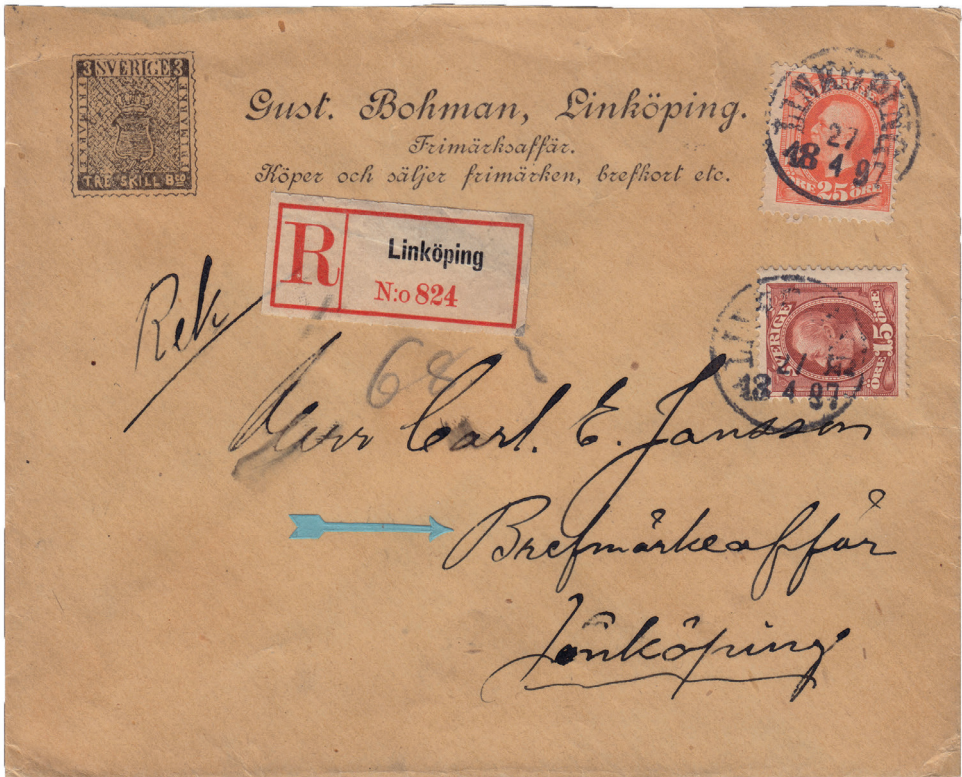 3 SVERIGE 3
TRE SKILL Bco
Gust. Bohman, Linköping.
Frimärksaffär.
Köper och säljer frimärken, brefkort etc.
LINKÖPING
27
18 4 97
ÖRE 25 ÖRE
R
Linköping
N:o 824
Rek
68
SVERIGE
15
ÖRE
18 4 97
Herr Carl. E. Jansson
Brefmärkeaffär
Jönköping